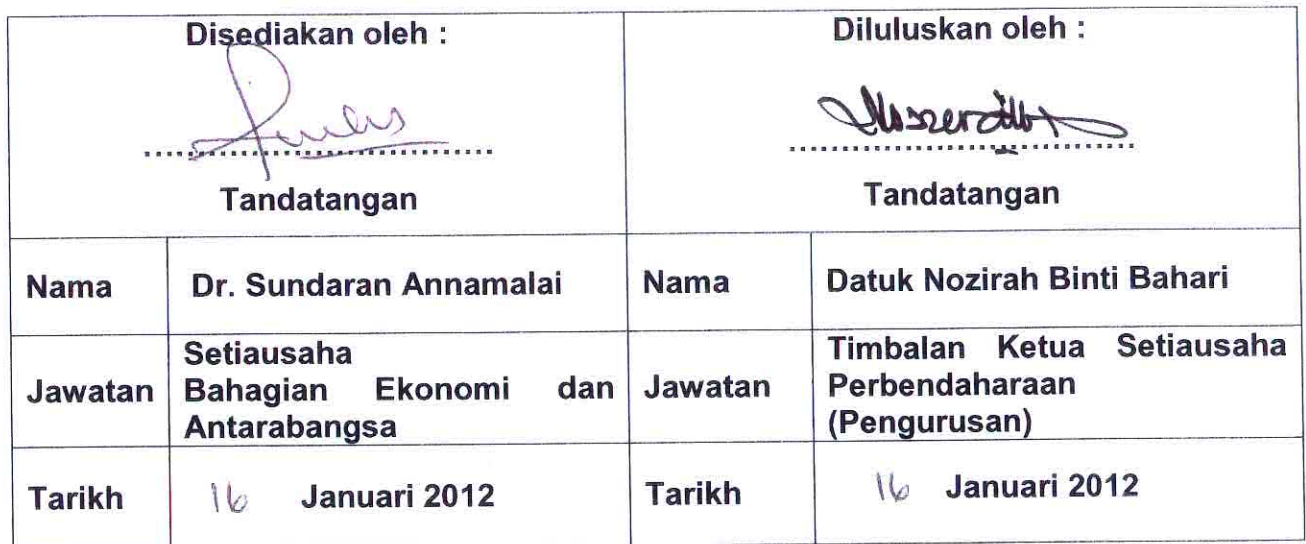 Disediakan oleh :
Diluluskan oleh :
Tandatangan
Tandatangan
Nama
Dr. Sundaran Annamalai
Nama
Datuk Nozirah Binti Bahari
Jawatan
Setiausaha
Bahagian Ekonomi dan
Antarabangsa
Jawatan
Timbalan Ketua Setiausaha
Perbendaharaan
(Pengurusan)
Tarikh
16 Januari 2012
Tarikh
16 Januari 2012